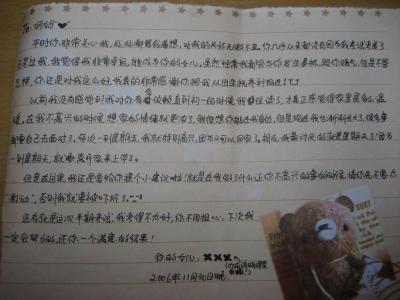 To 妈妈❤
平时你非常关心我,处处都替我着想,对我的关怀无微不至。你几乎从来都没有因为我考试考差了
而骂过我,我觉得我非常幸运,能成为你的女儿。虽然经常我都会与你发生矛盾,跟你赌气,但是不管
怎样,你还是对我这么好,我真的非常感谢你,把我从出生抚养到现在(13岁)
以前我没有感觉到我对你有多依赖,直到初一的时候,我住读了,才真正感觉得家里是多么温
暖。在我不高兴的时候,想家的情绪就更多了。我很想你能陪我身边,但是现在我也渐渐长大,很多事
都要自己去面对了。每次一到星期五,我就特别高兴,因为又可以回家了。相反,我最讨厌的就是星期天了!因为
一到星期天,就要离开家来上学了。
但是在这里,我还是要给你提个小建议哦!就是在我做错什么让你不高兴的事的时候,请你先不要太
“激动”,否则我就要被吓坏了。
还有就是这次半期考试,我考得不太好,你不用担心。下次我
一定会努力的,还你一个满意的结果!
你的女儿:×××
2006年11月30日晚
BURT